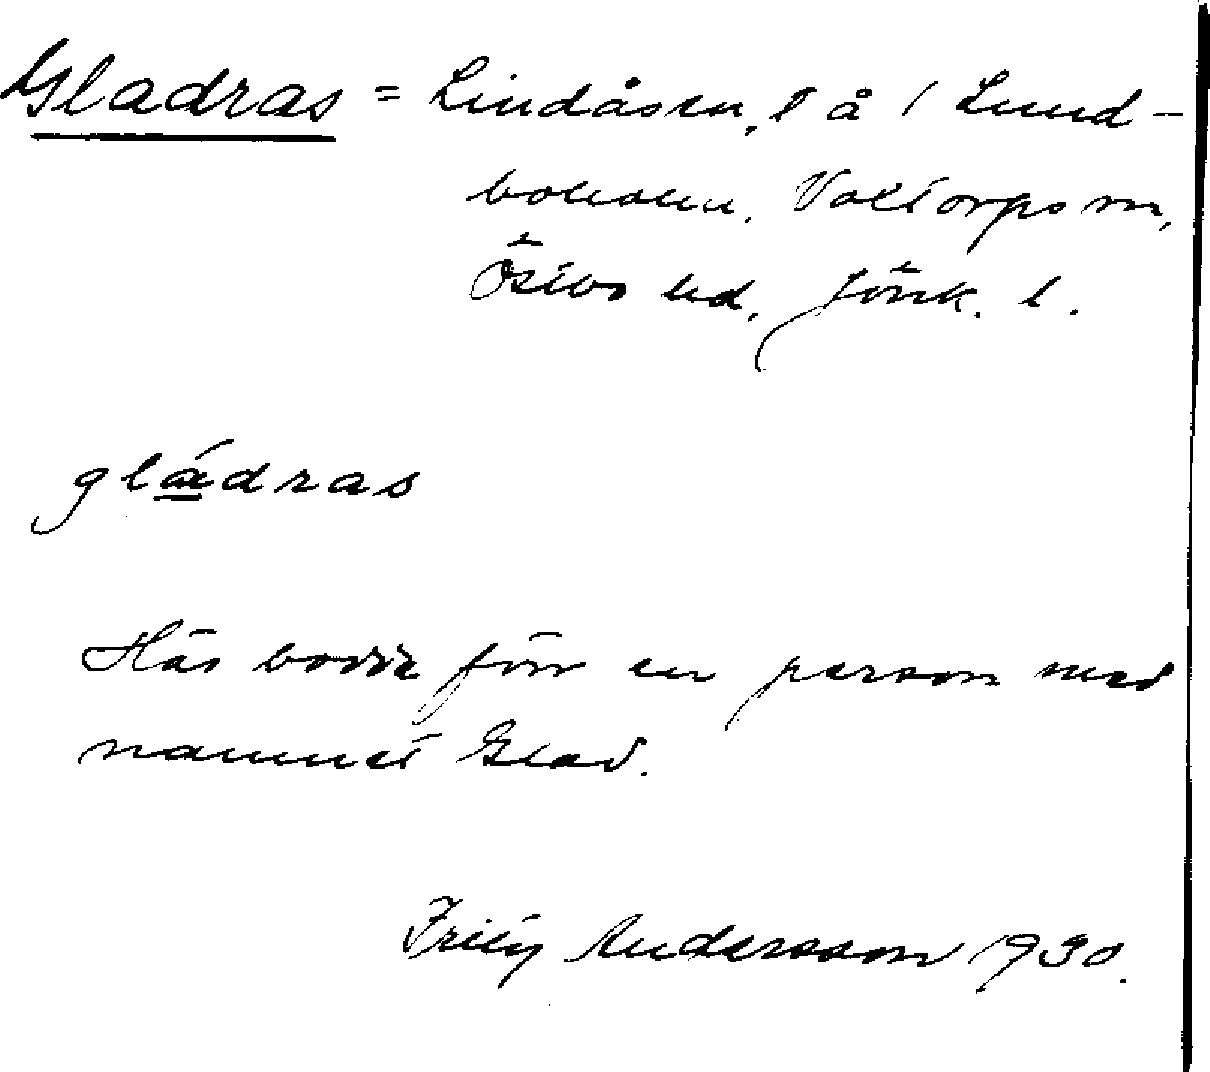 Gladras = Lindåsen, l å / Lund-
boholm, Valtorps sn,
Östbo hd, Jönk. l.
gládras
Här bodde förr en person med
namnet Glad.
Fritz Andersson 1930.